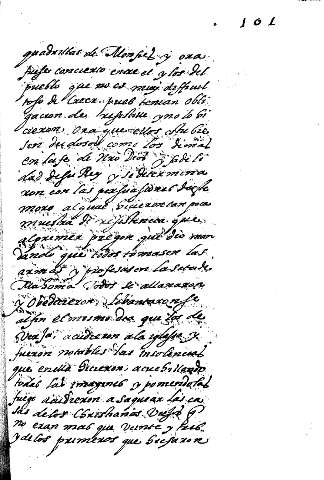 101
quadrillas de Monfel y ora
fuese concierto entre el y los del
pueblo que no es muy dificul
toso de Creer pues tenian obli
gacion de resistille y no lo hi
cieron ora que ellos estubie
sen dudosos como los demas
en la fe de nro Dios y fideli
dad de su Rey y se determina
ron con las persuasiones de este
moro al qual hicieron poca
muestra de resistencia que
al primer pregon que dio man
dando que todos tomasen las
armas y profesasen la seta de
Mahoma todos se allanaron
y Obedecieron, lebantaronse
al fin el mismo dia que los de
acudieron a la iglesia y
fueron notables las insolencias
que en ella hicieron acuchillando
todas las imagenes y poniendolas
fuego acudieron a saquear las ca
sas de los Christianos Viejos q
no eran mas que veinte y tres
y de los primeros que hicieron